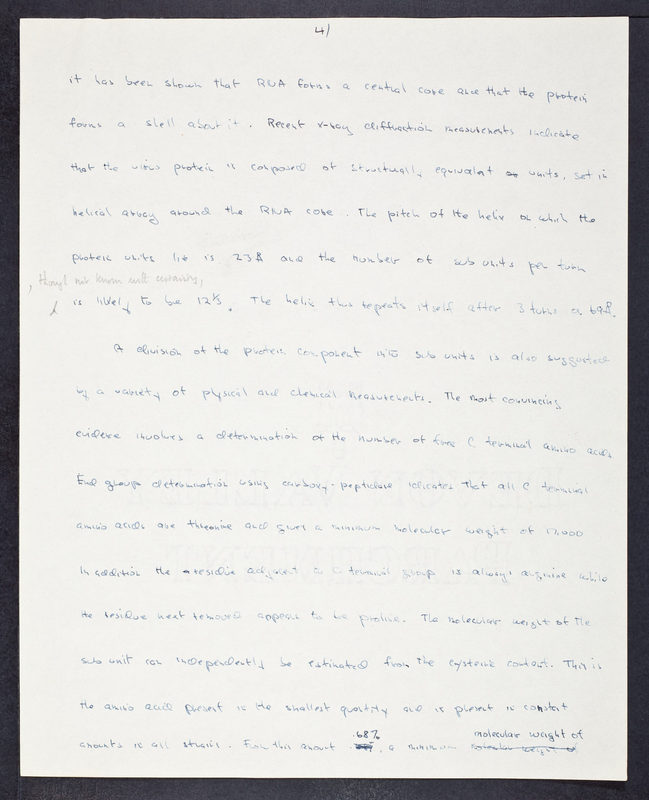 4/
it has been shown that RNA forms a central core and that the protein
forms a shell about it. Recent x-ray diffraction measurements indicate
that the virus protein is composed of structurally equivalent units, set in
helical array around the RNA core. The pitch of the helix on which the
protein units lie is 23Å and the number of sub units per turn
, though not known with certainty,
is likely to be 12⅓. The helix thus repeats itself after 3 turns or 69Å.
A division of the protein component into sub units is also suggested
by a variety of physical and chemical measurements. The most convincing
evidence involves a determination of the number of free C terminal amino acids.
End group determination using carboxy-peptidase idicates that all C terminal
amino acids are threonine and gives a minimum molecular weight of 17,000
In addition the residue adjacent to C terminal group is always arginine while
the residue next removed appears to be proline. The molecular weight of the
sub unit can independently be estimated from the cysteine content. This is
the amino acid present in the smallest quantity and is present in constant
.68% molecular weight of
amounts in all strains. From this amount , a minimum molecular weight of